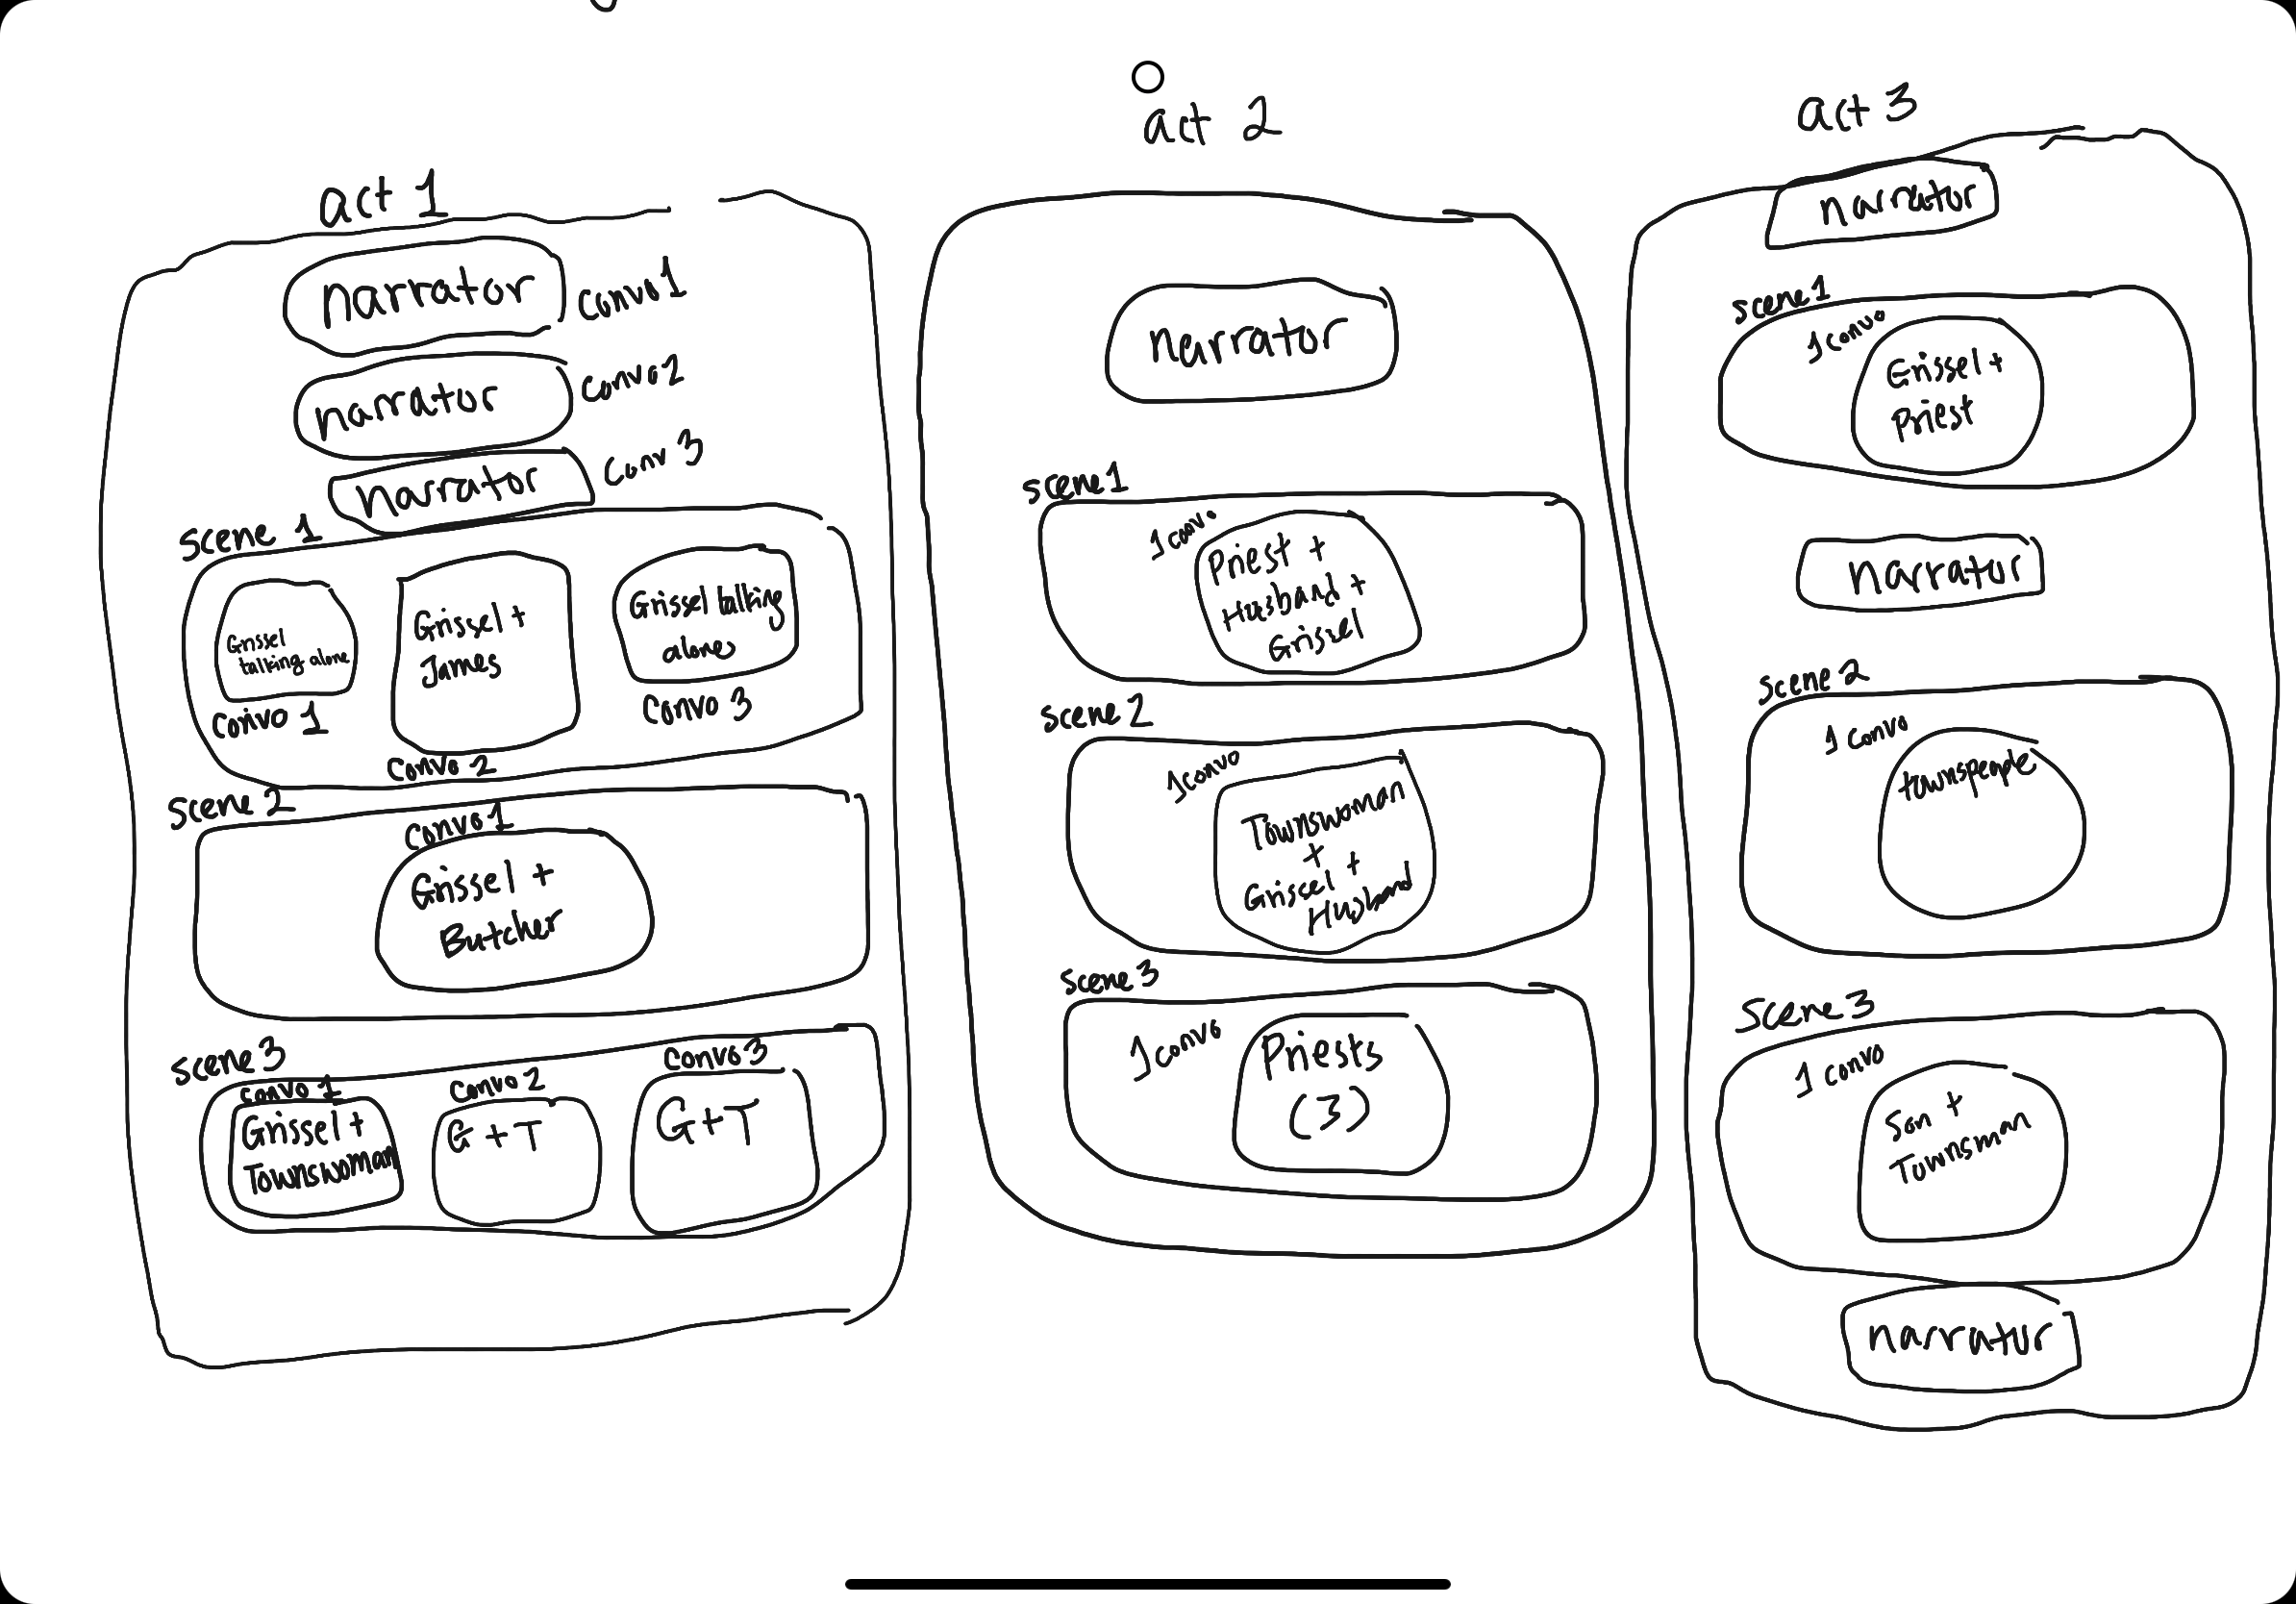 act 1
narrator
convo 1
narrator
convo 2
narrator
conv 3
scene 1
Grissel
talking alone
convo 1
Grissel +
James
convo 2
Grissel talking
alone
convo 3
scene 2
convo 1
Grissel +
Butcher
scene 3
convo 1
Grissel +
Townswoman
convo 2
G + T
convo 3
G + T
act 2
narrator
scene 1
1 convo
Priest +
Husband +
Grissel
scene 2
1 convo
Townswoman
+
Grissel +
Husband
scene 3
1 convo
Priests
(3)
act 3
narrator
scene 1
1 convo
Grissel +
Priest
narrator
scene 2
1 convo
townspeople
scene 3
1 convo
Son +
Townsman
narrator